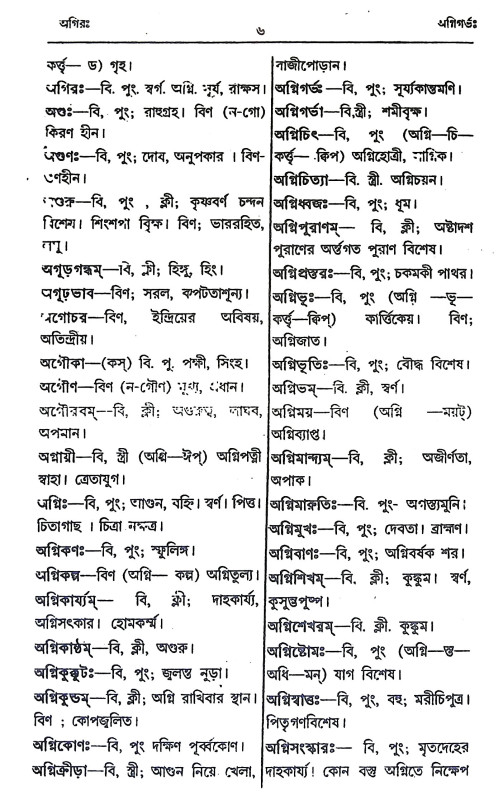 অগিরঃ
৬
অগ্নিগর্ভঃ
কর্ত্তৃ— ড) গৃহ।
অগিরঃ—বি. পুং. স্বর্গ. অগ্নি. সূর্য, রাক্ষস।
অগুঃ—বি, পুং; রাহুগ্রহ। বিণ (ন-গো)
কিরণ হীন।
অগুণঃ—বি, পুং; দোব, অনুপকার । বিণ-
গুণহীন।
অগুরু—বি, পুং , ক্লী; কৃষ্ণবর্ণ চন্দন
বিশেষ। শিংশপা বৃিক্ষ। বিণ; ভাররহিত,
লঘু।
অগূড়গন্ধম্—বি, ক্লী; হিঙ্গু, হিং।
অগূঢ়ভাব—বিণ; সরল, কপটতাশূন্য।
অগোচর—বিণ, ইন্দ্রিয়ের অবিষয়,
অতিন্দ্রীয়।
অগৌকা—(কস্) বি. পু. পক্ষী, সিংহ।
অগৌণ—বিণ (ন-গৌণ) মুখ্য, প্রধান।
অগৌরবম্—বি, ক্লী; অগুরুত্ব, লাঘব,
অপমান।
অগ্নায়ী—বি, স্ত্রী (অগ্নি—ঈপ্) অগ্নিপত্নী
স্বাহা। ত্রেতাযুগ।
অগ্নিঃ—বি, পুং; আগুন, বহ্নি। স্বর্ণ। পিত্ত।
চিতাগাছ । চিত্রা নক্ষত্র।
অগ্নিকণঃ—বি, পুং; স্ফুলিঙ্গ।
অগ্নিকল্প—বিণ (অগ্নি— কল্প) অগ্নিতুল্য।
অগ্নিকার্য্যম্— বি, ক্লী; দাহকার্য্য,
অগ্নিসৎকার। হোমকর্ম্ম।
অগ্নিকাষ্ঠম্—বি, ক্লী, অগুরু।
অগ্নিকুক্কুটঃ—বি, পুং; জ্বলন্ত নুড়া।
অগ্নিকুন্ডম্—বি, ক্লী; অগ্নি রাখিবার স্থান।
বিণ ; কোপজ্বলিত।
অগ্নিকোণঃ—বি, পুং দক্ষিণ পূর্ব্বকোণ।
অগ্নিক্রীড়া—বি, স্ত্রী; আগুন নিয়ে খেলা,
বাজীপোড়ান।
অগ্নিগর্ভঃ —বি, পুং; সূর্য্যকান্তমণি।
অগ্নিগর্ভা—বি,স্ত্রী; শমীবৃক্ষ।
অগ্নিচিৎ—বি, পুং (অগ্নি—চি—
কর্ত্তৃ—ক্বিপ) অগ্নিহোত্রী, সাগ্নিক।
অগ্নিচিত্যা—বি. স্ত্রী. অগ্নিচয়ন।
অগ্নিধ্বজঃ—বি, পুং; ধূম।
অগ্নিপুরাণম্— বি, ক্লী; অষ্টাদশ
পুরাণের অর্ন্তগত পুরাণ বিশেষ।
অগ্নিপ্রস্তরঃ—বি, পুং; চকমকী পাথর।
অগ্নিভূঃ—বি, পুং (অগ্নি —ভূ—
কর্ত্তৃ—ক্বিপ্) কার্ত্তিকেয়। বিণ;
অগ্নিজাত।
অগ্নিভূতিঃ—বি, পুং; বৌদ্ধ বিশেষ।
অগ্নিভম্—বি. ক্লী, স্বর্ণ।
অগ্নিময়—বিণ (অগ্নি —ময়ট্)
অগ্নিব্যাপ্ত।
অগ্নিমান্দ্যম্—বি, ক্লী; অজীর্ণতা,
অপাক।
অগ্নিমারুতিঃ—বি. পুং- অগস্ত্যমুনি।
অগ্নিমুখঃ—বি, পুং; দেবতা। ব্রাহ্মণ।
অগ্নিবাণঃ—বি, পুং; অগ্নিবর্ষক শর।
অগ্নিশিখম্—বি. ক্লী; কুঙ্কুম। স্বর্ণ,
কুসুম্ভপুষ্প।
অগ্নিশেখরম্—বি. ক্লী. কুঙ্কুম।
অগ্নিষ্টোমঃ—বি, পুং (অগ্নি—স্ত—
অধি—মন্) যাগ বিশেষ।
অগ্নিস্বাত্তঃ—বি, পুং, বহু; মরীচিপুত্র।
পিতৃগণবিশেষ।
অগ্নিসংস্কারঃ— বি, পুং; মৃতদেহের
দাহকার্য্য! কোন বস্তু অগ্নিতে নিক্ষেপ